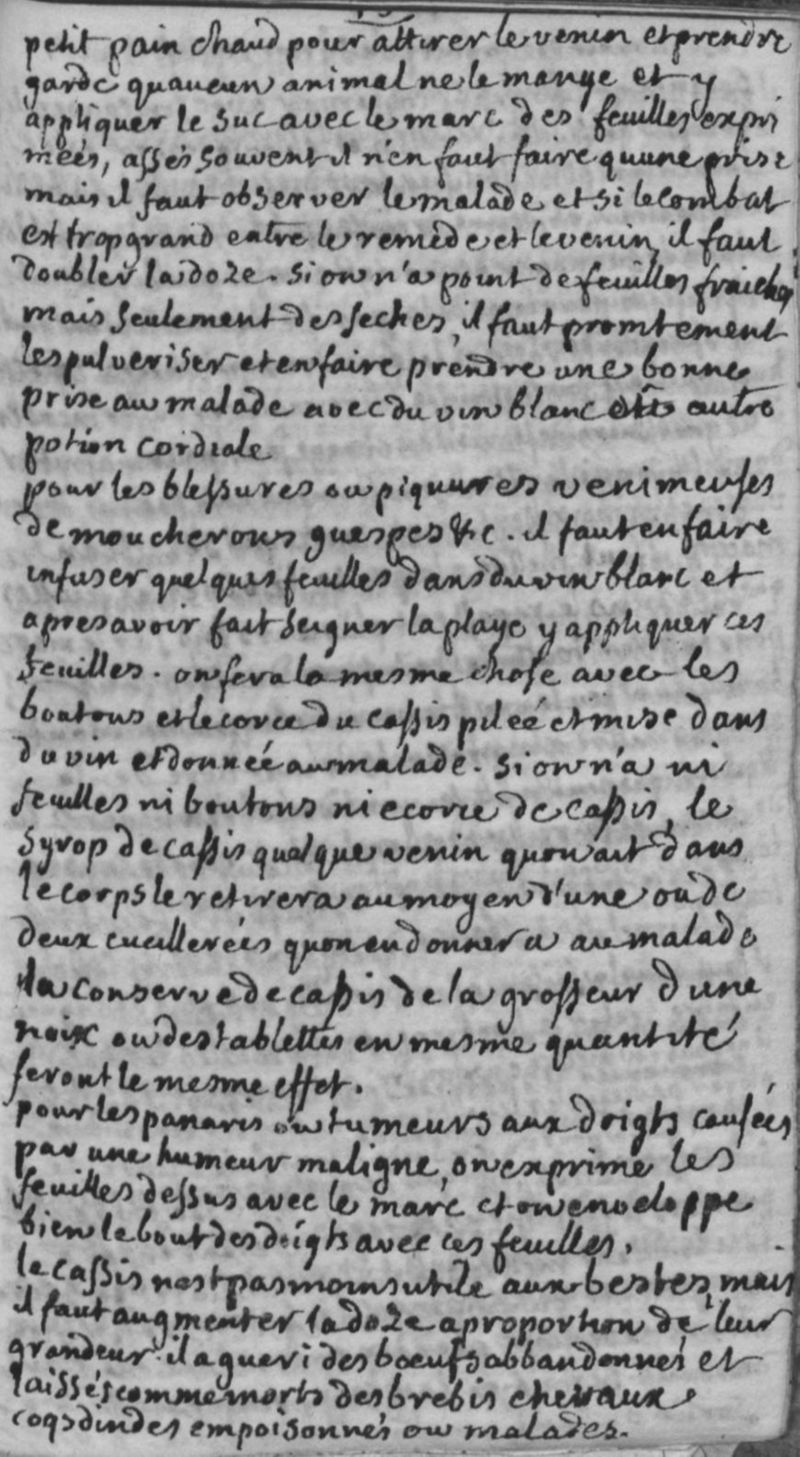 petit pain chaud pour attirer le venin et prendre
garde quaucun animal ne le mange et y
appliquer le suc avec le marc des feuilles expri
meés, assés souvent il n'en faut faire quune prise
mais il faut observer le malade et si le combat
est trop grand entre le remede et le venin, il faut
doubler la doze. Si on n'a point de feuilles fraiches
mais seulement des seches, il faut promtement
les pulveriser et en faire prendre une bonne
prise au malade avec du vin blanc autre
potion cordiale
pour les blessures ou piquures venimeuses
de moucherons guespes &c. il faut en faire
infuser quelques feuilles dans du vin blanc et
apres avoir fait seigner la playe y appliquer ces
feuilles. on fera la mesme chose avec les
boutons et lecorce du cassis pileé et mise dans
du vin et donneé au malade. Si on n'a ni
feuilles ni boutons ni ecorce de cassis, le
syrop de cassis quelque venin quon ait dans
le corps le retirera au moyen d'une ou de
deux cueillereés quon en donnera au malade
la conserve de cassis de la grosseur d'une
noix ou des tablettes en mesme quantité
feront le mesme effet.
pour les panaris ou tumeurs aux doigts causées
par une humeur maligne, on exprime les
feuilles dessus avec le marc et on enveloppe
bien le bout des doigts avec ces feuilles.
le cassis nest pas moins utile aux bestes, mais
il faut augmenter la doze a proportion de leur
grandeur. il a gueri des boeufs abbandonnés et
laissés comme morts des brebis chevaux
coqs dindes empoisonnés ou malades.